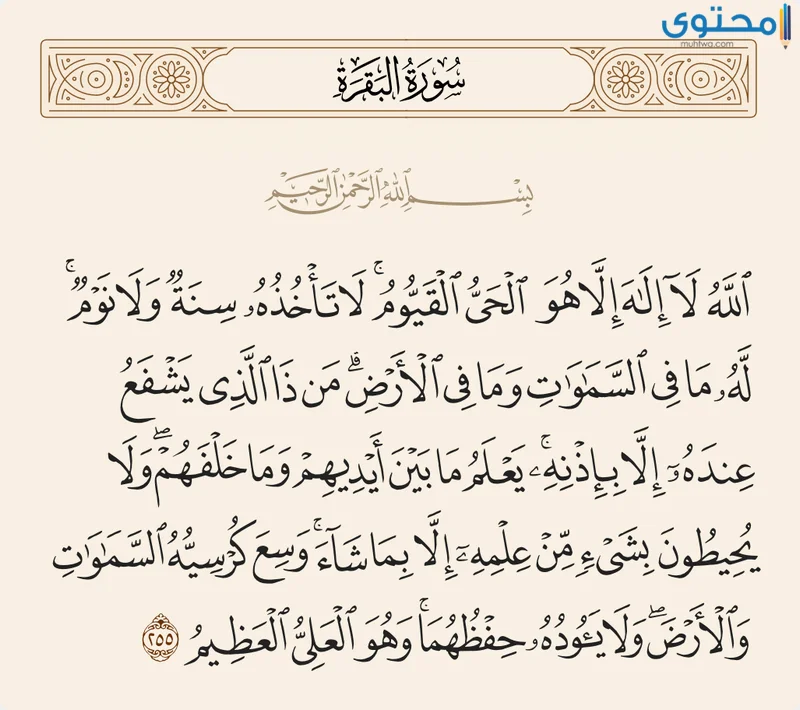 محتوى
muhtwa.com
سُورَةُ البَقَرَةِ
بِسْمِ ٱللَّهِ ٱلرَّحْمَٰنِ ٱلرَّحِيمِ
ٱللَّهُ لَآ إِلَٰهَ إِلَّا هُوَ ٱلْحَىُّ ٱلْقَيُّومُ ۚ لَا تَأْخُذُهُۥ سِنَةٌ وَلَا نَوْمٌ ۚ
لَّهُۥ مَا فِى ٱلسَّمَٰوَٰتِ وَمَا فِى ٱلْأَرْضِ ۗ مَن ذَا ٱلَّذِى يَشْفَعُ
عِندَهُۥٓ إِلَّا بِإِذْنِهِۦ ۚ يَعْلَمُ مَا بَيْنَ أَيْدِيهِمْ وَمَا خَلْفَهُمْ ۖ وَلَا
يُحِيطُونَ بِشَىْءٍ مِّنْ عِلْمِهِۦٓ إِلَّا بِمَا شَآءَ ۚ وَسِعَ كُرْسِيُّهُ ٱلسَّمَٰوَٰتِ
وَٱلْأَرْضَ ۖ وَلَا يَـُٔودُهُۥ حِفْظُهُمَا ۚ وَهُوَ ٱلْعَلِىُّ ٱلْعَظِيمُ ٢٥٥